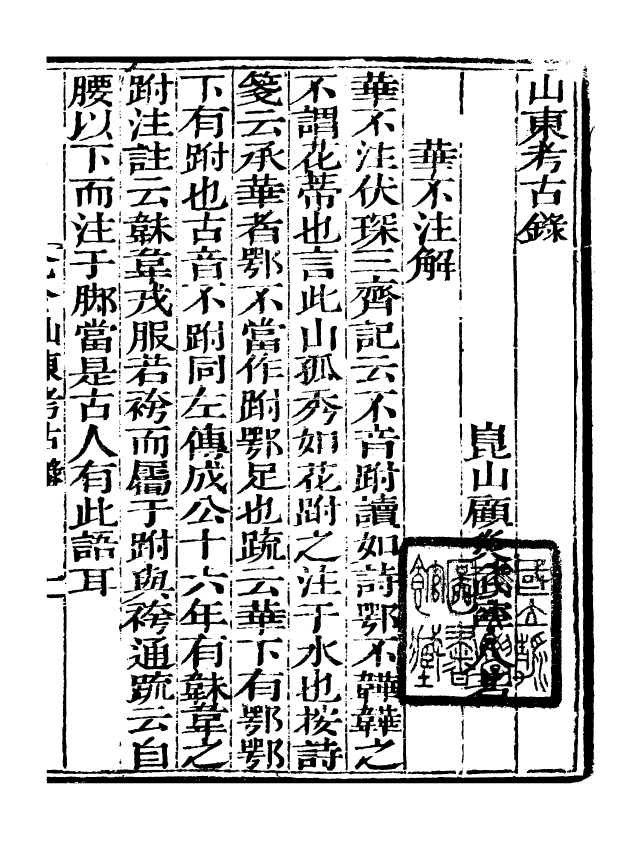 山東考古錄
崑山顧炎武寧人著
華不注解
華不注伏琛三齊記云不音跗讀如詩鄂不韡韡之
不謂花蒂也言此山孤秀如花跗之注于水也按詩
箋云承華者鄂不當作跗鄂足也疏云華下有鄂鄂
下有跗也古音不跗同左傳成公十六年有韎韋之
跗注註云韎韋戎服若袴而屬于跗與袴通疏云自
腰以下而注于脚當是古人有此語耳
山東考古錄